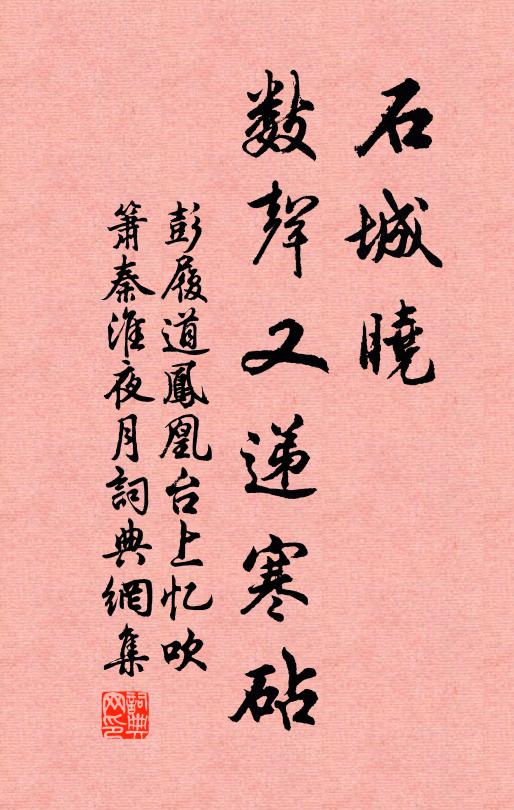 石城曉
数聲又递寒砧
彭履道鳳凰台上忆吹
簫秦淮夜月詞典網集
詞典网印